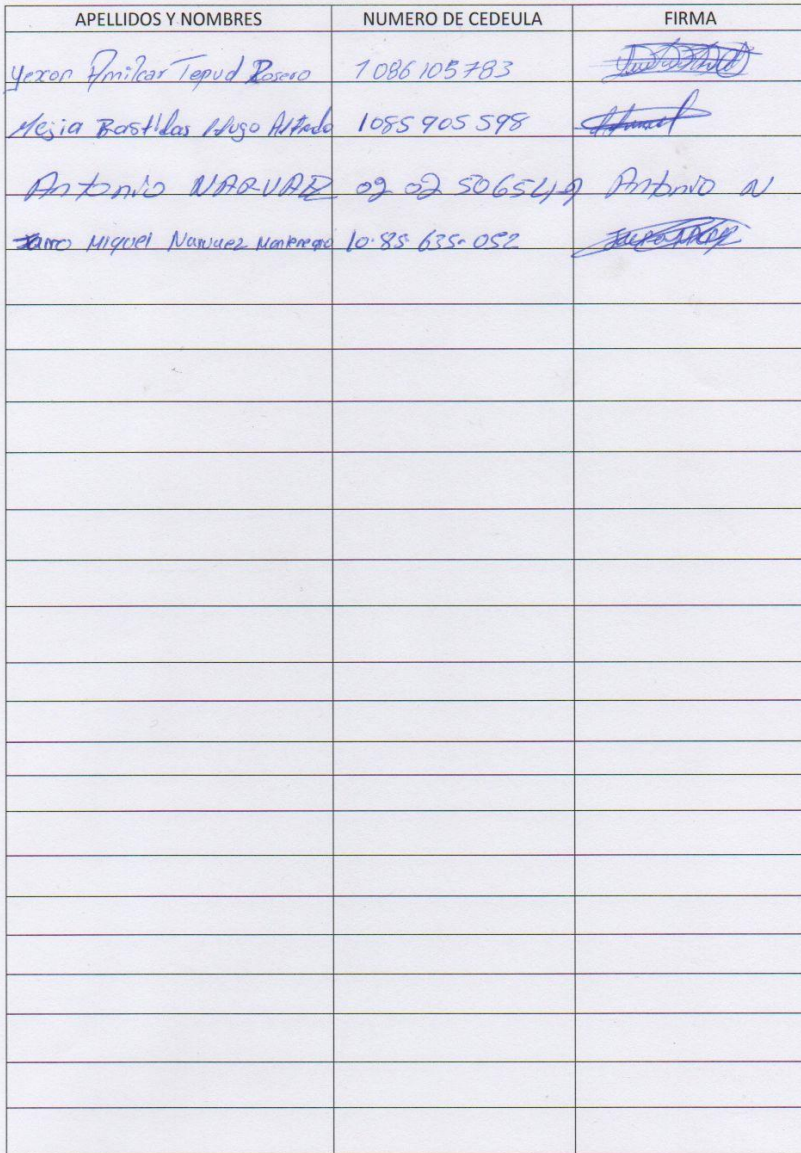 APELLIDOS Y NOMBRES NUMERO DE CEDEULA FIRMA
Yexon Amilcar Tepud Rosero 1086105783
Mejia Bastidas Hugo Alfredo 1085905598
Antonio NARVAEZ 02 02 506549 Antonio N
Jairo Miguel Narvaez Montenegro 10.85 635.052